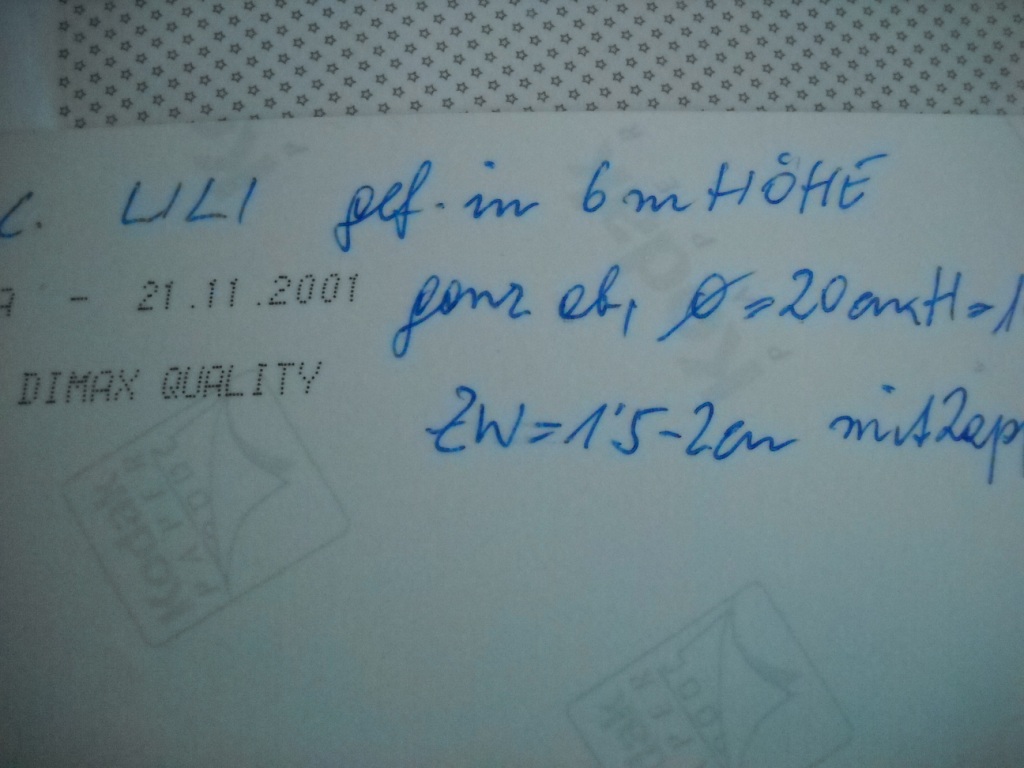 LILI gef. in 6m HÖHE
A - 21.11.2001
ganz ab, Ø=20cm H=1
DIMAX QUALITY
ZW=1'5-2cm mit Zap
Kodak
Kodak